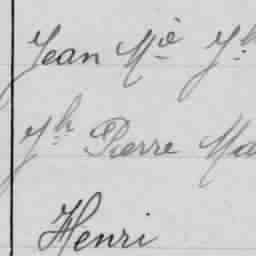 Jean Mie Jh
Jh Pierre Ma
Henri